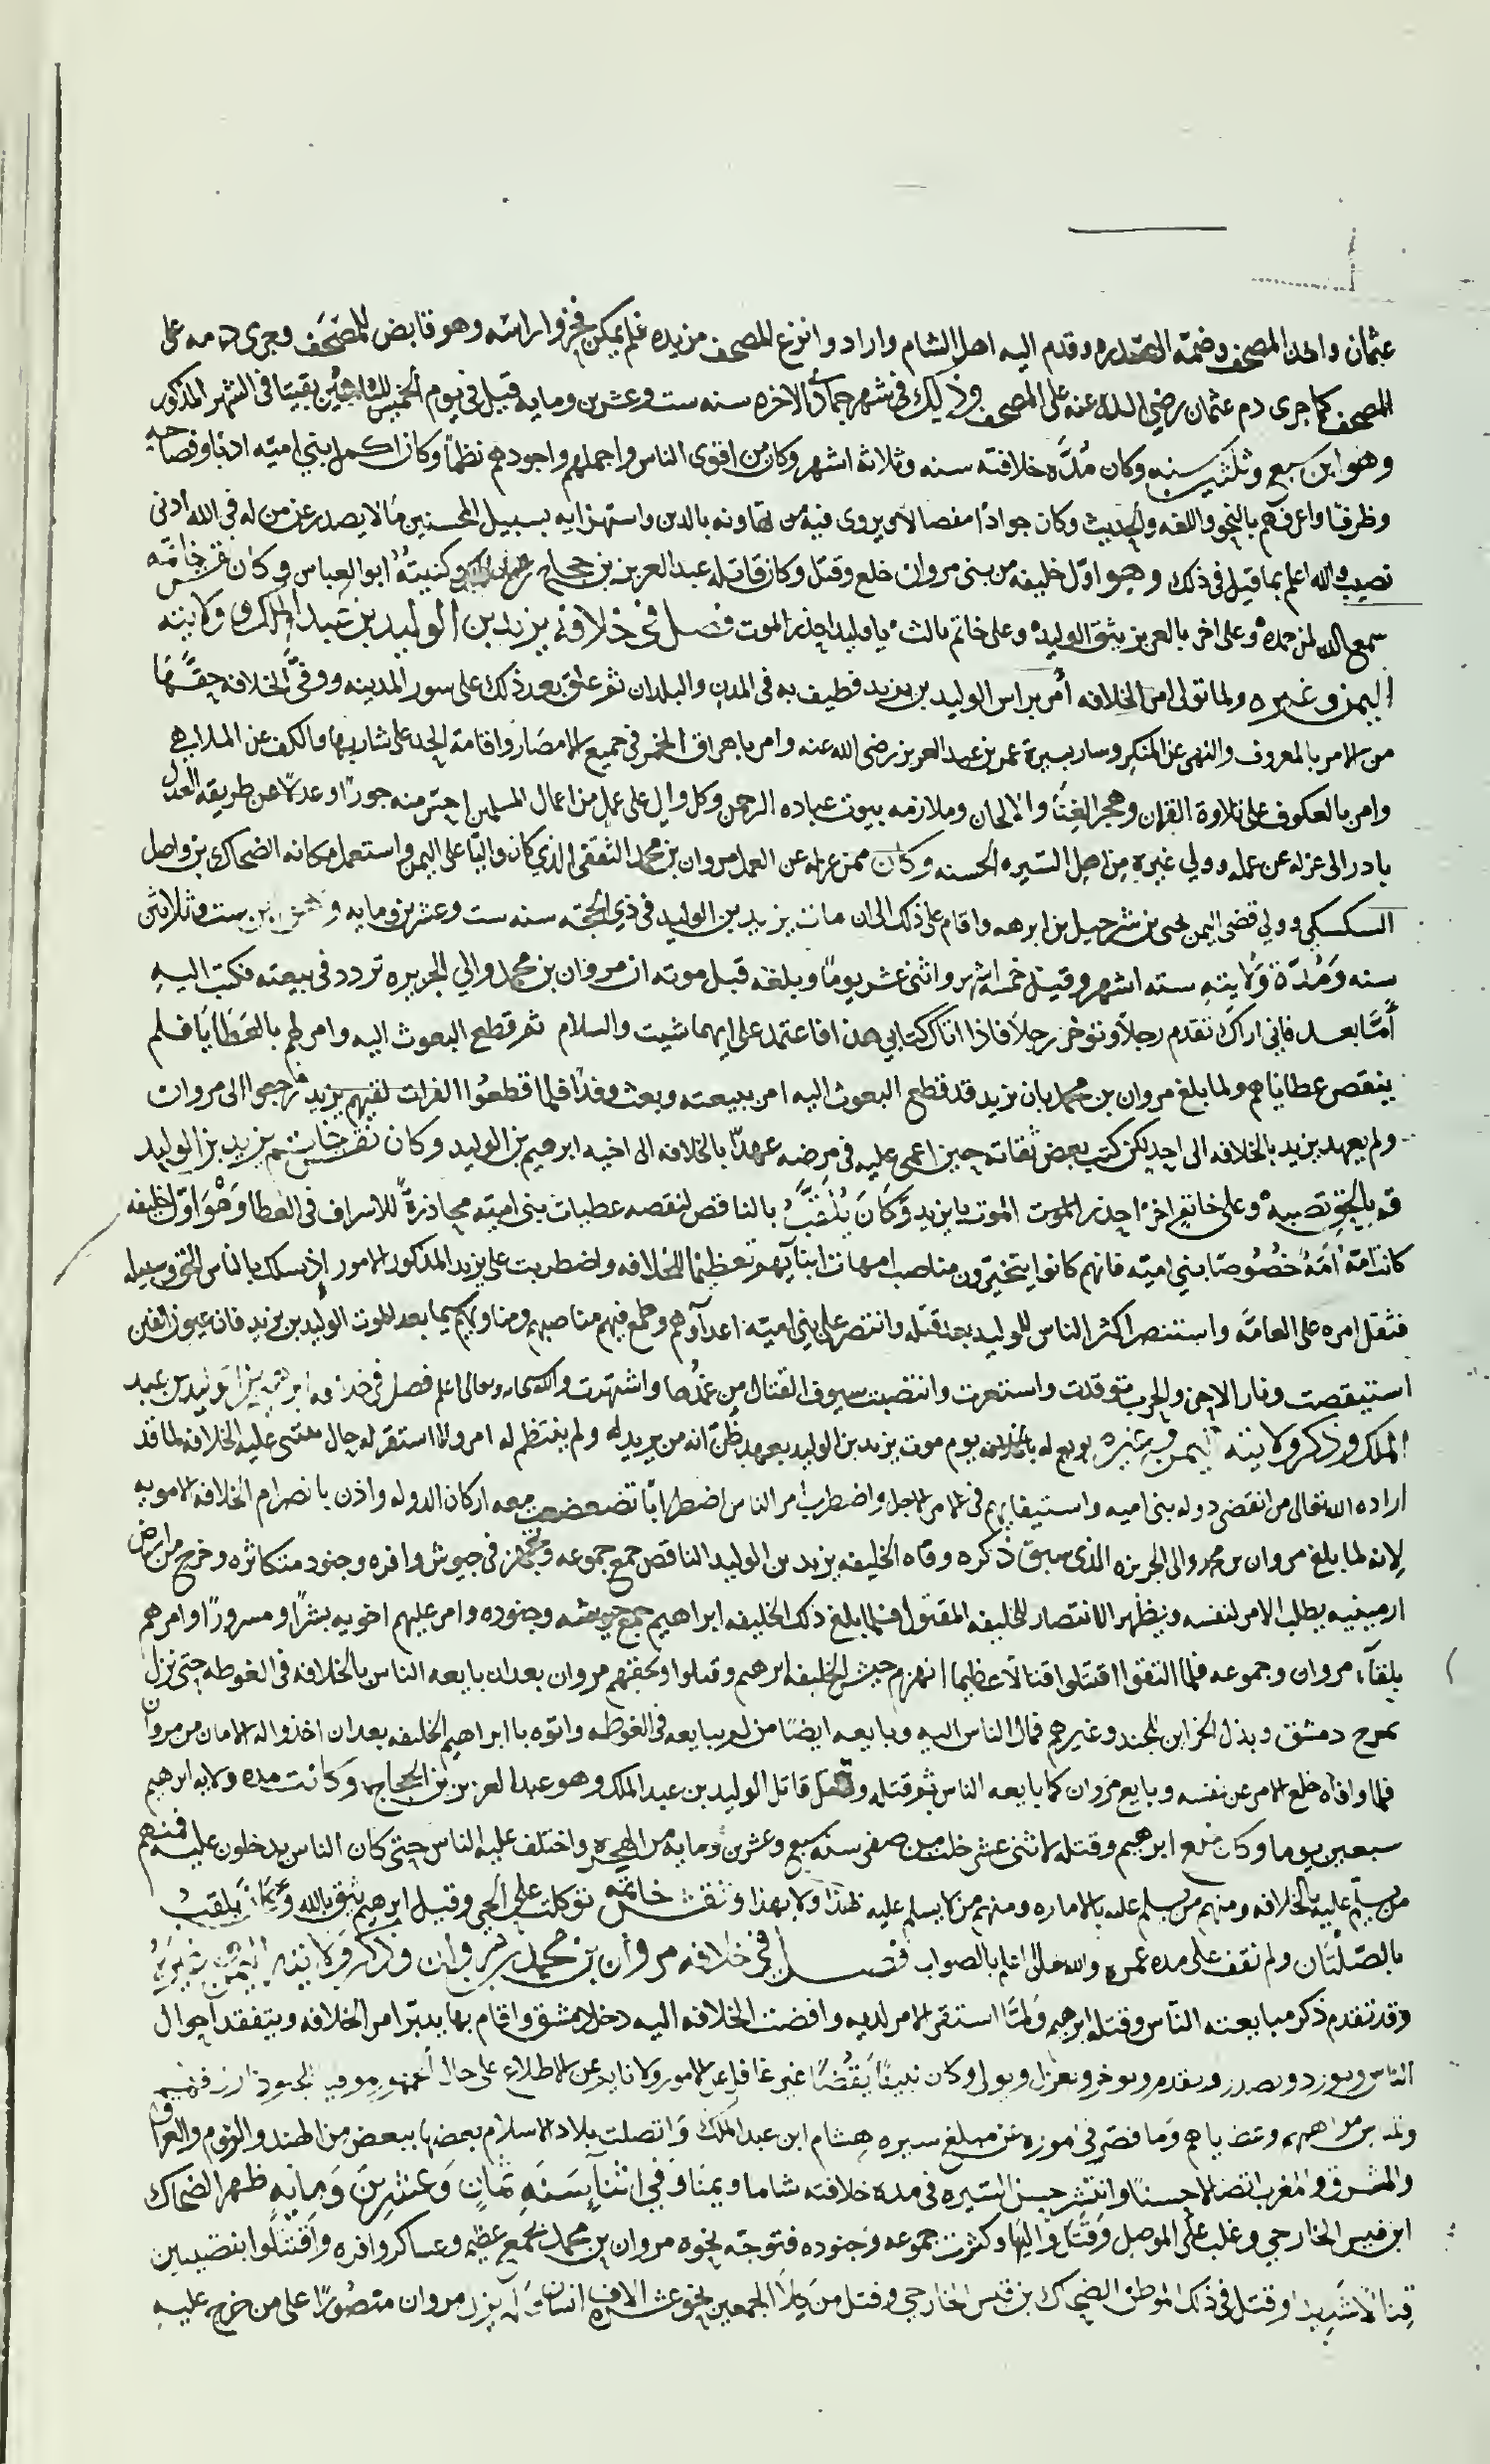 عثمان واخذ المصحف وضمه الى صدره وقدم اليه اهل الشام وارادوا نزع المصحف من يده فلم يمكن فحزوا راسه وهو قابض للمصحف وجرى دمه على
المصحف كما جرى دم عثمان رضي الله عنه على المصحف وذلك في شهر جمادى الاخره سنه ست وعشرين ومايه قيل في يوم الخميس لليلتين بقيتا في الشهر المذكور
وهو ابن سبع وثلثين سنه وكان مدة خلافته سنه وثلاثة اشهر وكان من اقوى الناس واجملهم واجودهم نظما وكان اكمل بني اميه ادبا وفصاحه
وظرفا واعرفهم بالنحو واللغه والحديث وكان جوادا مفضالا من يروى فيه من تهاونه بالدين واستهزايه بسبيل المحسنين ما لا يصدر عن من له في الله ادنى
نصيب والله اعلم بما قيل في ذلك وهو اول خليفه من بني مروان خلع وقتل وكان قاتله عبد العزيز بن حجاج بن عبد الملك وكنيته ابو العباس وكان نقش خاتمه
سمع الله لمن حمده وعلى اخر بالعزيز يثق الوليد وعلى خاتم ثالث يا وليد احذر الموت فصل في خلافة يزيد بن الوليد بن عبد الملك وولايته
اليمن وغيره ولما تولى امر الخلافه امر براس الوليد بن يزيد فطيف به في المدن والبلدان ثم علق بعد ذلك على سور المدينه ووفى الخلافه حقها
من الامر بالمعروف والنهي عن المنكر وسار بسيرة عمر بن عبد العزيز رضي الله عنه وامر باهراق الخمر في جميع الامصار واقامة الحد على شاربها والكف عن الملاهي
وامر بالعكوف على تلاوة القران وهجر الغنا والالحان وملازمه بيوت عباده الرحمن وكل وال على عمل من اعمال المسلمين احتر منه جورا وعدلا عن طريقه العدل
بادر الى عزله عن عمله وولي غيره من اهل السيره الحسنه وكان ممن عزله عن العمل مروان بن محمد الثقفي الذي كان واليا على اليمن واستعمل مكانه الضحاك بن واصل
السكسكي وولي قضى اليمن يحيى بن شرحبيل بن ابرهه واقام على ذلك الى ان مات يزيد بن الوليد في ذي الحجه سنه ست وعشرين ومايه وهو ابن ست وثلاثين
سنه ومدة ولايته سته اشهر وقيل خمسه اشهر واثنى عشر يوما وبلغه قبل موته ان مروان بن محمد والي الجزيره تردد في بيعته فكتب اليه
اما بعد فاني اراك تقدم رجلا وتوخر رجلا فاذا اتاك كتابي هذا فاعتمد على ايهما شيت والسلام ثم قطع البعوث اليه وامر لهم بالعطايا فلم
ينقص عطاياهم ولما بلغ مروان بن محمد بان يزيد قد قطع البعوث اليه امر ببيعته وبعث وفدا فلما قطعوا الفرات لقيهم بريد فرجعوا الى مروان
ولم يعهد يزيد بالخلافه الى احد لكن كتب بعض ثقاته حين اغمي عليه في مرضه عهدا بالخلافه الى اخيه ابرهيم بن الوليد وكان نقش خاتم يزيد بن الوليد
قم بالحق تصبه وعلى خاتم اخر احذر الموت الموت يا يزيد وكان يلقب بالناقص لنقصه عطيات بني اميه محاذرة للاسراف في العطا وهو اول خليفه
كانت امه امة خصوصا بني اميه فانهم كانوا يتخيرون مناصب امهات ابنايهم تعظيما للخلافه واضطربت على يزيد المذكور الامور اذ سلك بالناس التقى وسبيله
فثقل امره على العامه واستنصر اكثر الناس للوليد بعد قتله وانتصر على بني اميه اعداوهم وطمع فيهم مناصبهم ومناويهم سيما بعد الموت الوليد بن يزيد فان عيون الفتن
استيقضت ونار الاحن والحرب توقدت واستعرت وانتضيت سيوف القتال من غمدها واشتهرت والله سبحانه وتعالى اعلم فصل في خلافه ابرهيم بن الوليد بن عبد
الملك وذكر ولايته اليمن وغيره بويع له بالخلافه يوم موت يزيد بن الوليد بعهد ظن انه من يزيد له ولم ينتظم له امر ولا استقر له حال ملتبسي عليه الخلافه لما قد
اراده الله تعالى من انقضى دوله بني اميه واستيفايهم في الامر الاجل واضطرب امر الناس اضطرابا تضعضعت معه اركان الدوله واذن بانصرام الخلافه الامويه
لانه لما بلغ مروان بن محمد والي الجزيره الذي سبق ذكره وفاه الخليفه يزيد بن الوليد الناقص جمع جموعه وتجهز في جيوش وافره وجنود متكاثره وخرج من ارض
ارمينيه يطلب الامر لنفسه ويظهر الانتصار للخليفه المقتول فلما بلغ ذلك الخليفه ابراهيم جمع جيوشه وجنوده وامر عليهم اخويه بشرا ومسرورا وامرهم
بلقآء مروان وجموعه فلما التقوا اقتتلوا قتالا عظيما انهزم جيش الخليفه ابرهيم وقتلوا ولحقهم مروان بعد ان بايعه الناس بالخلافه في الغوطه حتى نزل
بمرج دمشق وبذل الخزاين للجند وغيرهم فمال الناس اليه وبايعه ايضا من لم يبايعه في الغوطه واتوه بابراهيم الخليفه بعد ان اخذوا له الامان من مروان
فلما وافاه خلع الامر عن نفسه وبايع مروان كما بايعه الناس ثم قتله وقتل قاتل الوليد بن عبد الملك وهو عبد العزيز بن الحجاج وكانت مده ولايه ابرهيم
سبعين يوما وكان خلع ابرهيم وقتله لاثنى عشر خلت من صفر سنه سبع وعشرين ومايه من الهجره واختلف عليه الناس حتى كان الناس يدخلون عليه فمنهم
من يسلم عليه بالخلافه ومنهم من يسلم عليه بالاماره ومنهم من لا يسلم عليه بهذا ولا بهذا ونقش خاتمه توكلت على الحي وقيل ابرهيم يثق بالله وكان يلقب
بالصلتان ولم نقف على مده عمره والله تعالى اعلم بالصواب فصل في خلافه مروان بن محمد بن مروان وذكر ولايته اليمن وغيره
وقد تقدم ذكر مبايعته الناس وقتله ابرهيم ولما استقر الامر لديه وافضت الخلافه اليه دخل دمشق واقام بها يدبر امر الخلافه ويتفقد احوال
الناس ويورد ويصدر ويقدم ويوخر ويعزل ويولي وكان نبيها يقضا غير غافل عن الامور ولا نايم عن الاطلاع على حال الجمهور
وعطاياهم وما قصر في اموره عن مبلغ سيره هشام ابن عبد الملك واتصلت بلاد الاسلام بعضها ببعض من الهند والروم والعراق
والمشرق والمغرب اتصالا حسنا وانتشر حسن السيره في مدة خلافته شاما ويمنا وفي اثنآ سنه ثمان وعشرين ومايه ظهر الضحاك
ابن قيس الخارجي وغلب على الموصل وقتل واليها وكثرت جموعه وجنوده فتوجه نحوه مروان بن محمد بجمع عظيم وعساكر وافره واقتتلوا بنصيبين
قتالا شديدا وقتل في ذلك الموطن الضحاك بن قيس الخارجي وقتل من كلا الجمعين نحو عشرة الاف انسان ولم يزل مروان منصورا على من خرج عليه